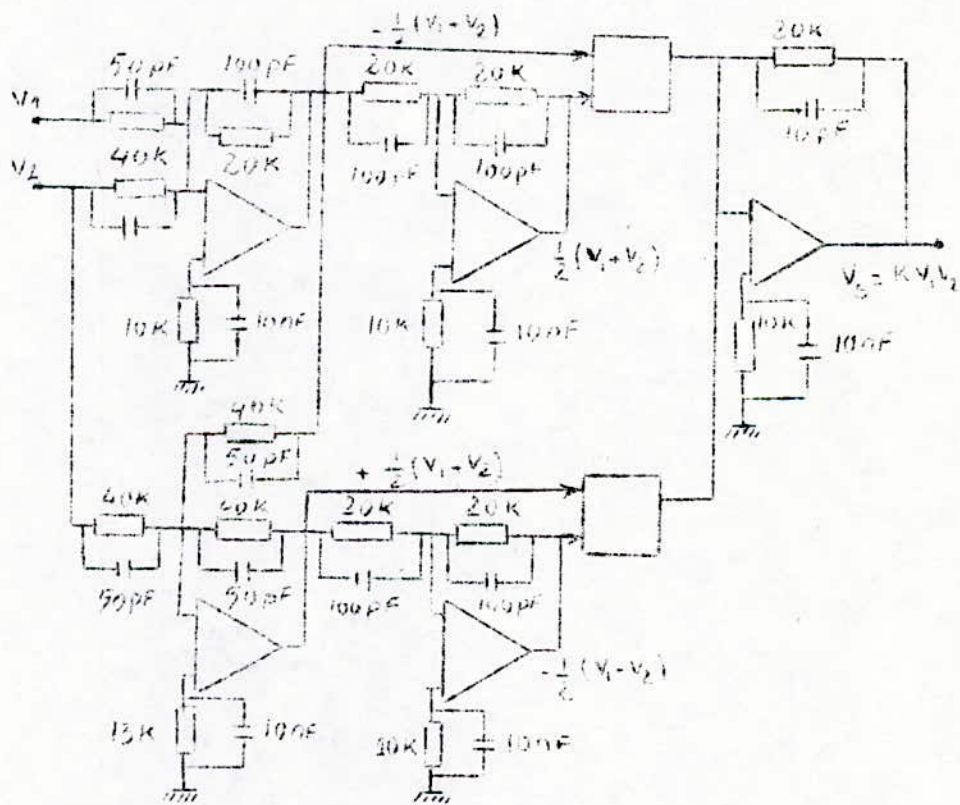 -½(V₁+V₂)
50pF
100pF
20K
20K
20K
V1
V2
40K
20K
100pF
100pF
10pF
½(V₁+V₂)
Vs = K V₁V₂
10K
10nF
10K
10nF
10K
10nF
40K
50pF
+ ½(V₁-V₂)
40K
40K
20K
20K
50pF
50pF
100pF
100pF
-½(V₁-V₂)
13K
10nF
10K
10nF